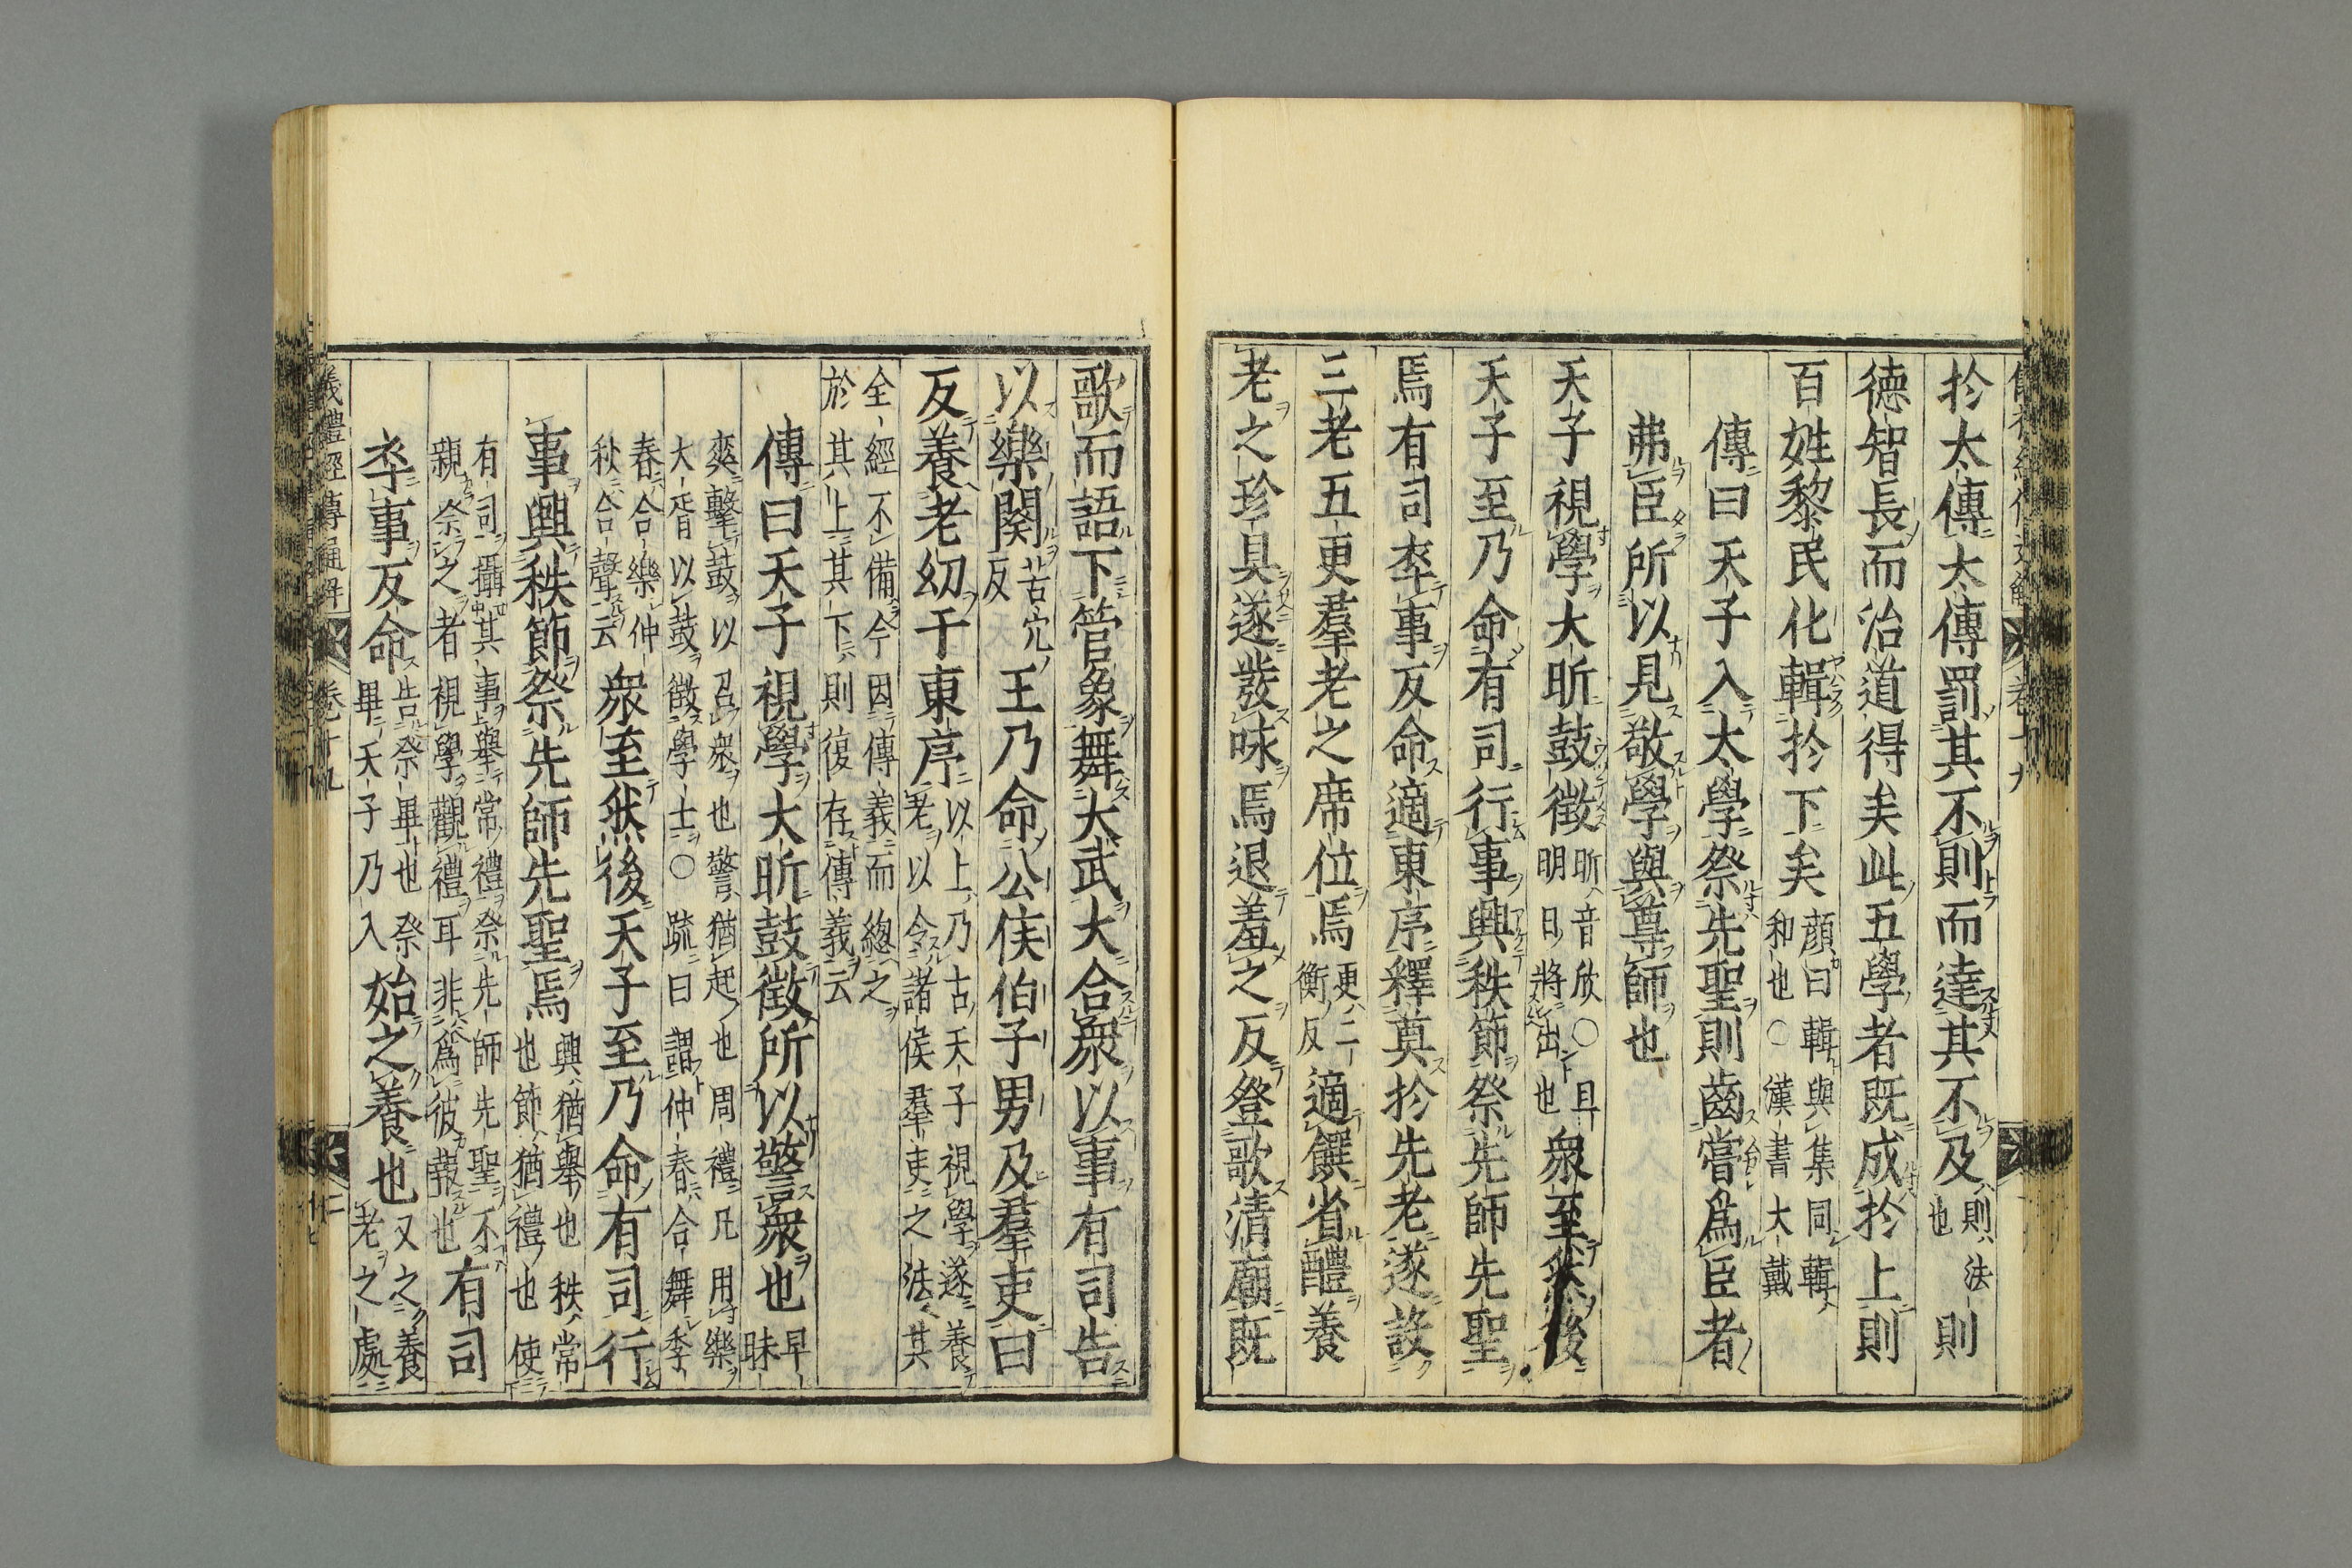 於太傅太傅罰其不則而達其不及則法也則
德智長而治道得矣此五學者既成於上則
百姓黎民化輯於下矣顔曰輯與集同輯和也○漢書大戴
傳曰天子入太學祭先聖則齒嘗爲臣者
弗臣所以見敬學與尊師也
天子視學大昕鼓徵昕音欣○早明日將出也衆至然後
天子至乃命有司行事興秩節祭先師先聖
焉有司卒事反命適東序釋奠於先老遂設
三老五更羣老之席位焉更ハ二衡ノ反適饌省醴養
老之珍具遂發咏焉退羞之反登歌清廟既
歌而語下管象舞大武大合衆以事有司告
以樂闋苦穴ノ反王乃命公侯伯子男及羣吏曰
反養老幼于東序以上乃古天子視學遂養老以令諸侯羣吏之法其
全經不備今因傳義而總之於其上其下則復存傳義云
傳曰天子視學大昕鼓徵所以警衆也早昧
爽擊鼓以召衆也警猶起也周禮凡用樂大胥以鼓徵學士○疏曰謂仲春合舞季
春合樂仲秋合聲云衆至然後天子至乃命有司行
事興秩節祭先師先聖焉興猶舉也秩常也節猶禮也使
有司攝其事舉常禮祭先師先聖不親祭之者視學觀禮耳非爲彼報也有司
卒事反命告祭畢也祭畢天子乃入始之養也又之養老之處
儀禮經傳通解 卷十九